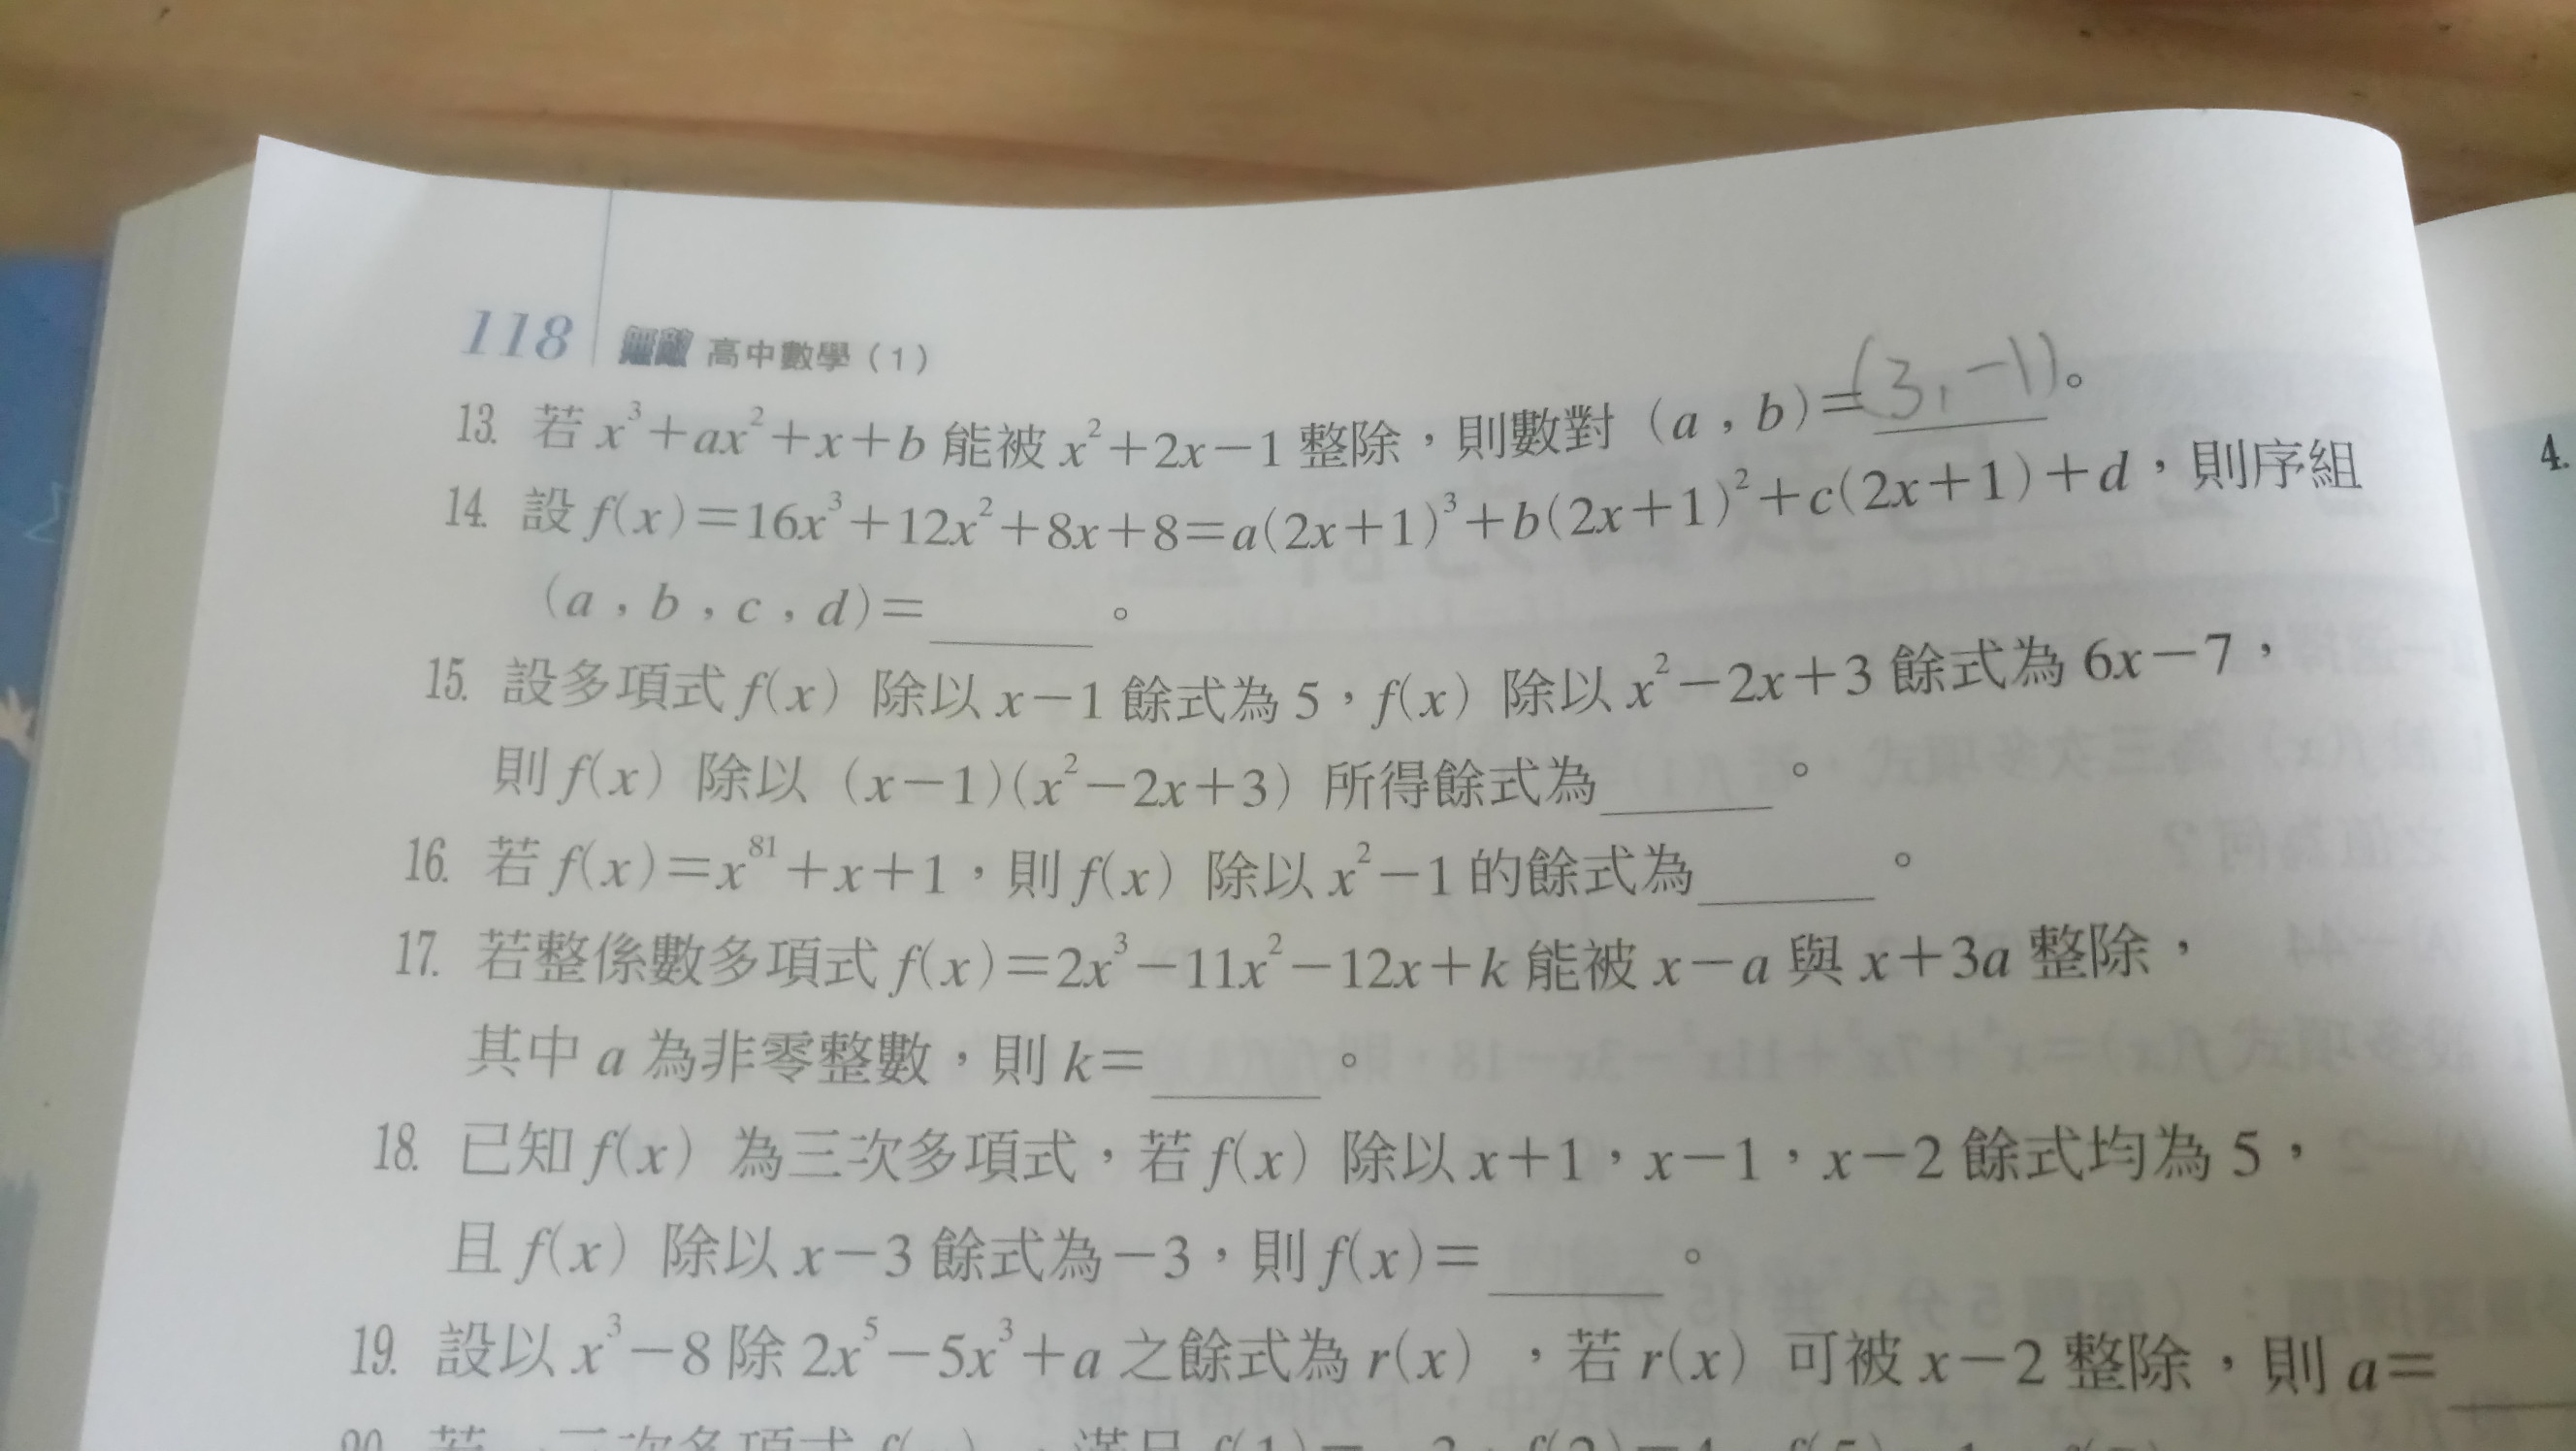 118 無敵 高中數學（1）
13. 若 x³+ax²+x+b 能被 x²+2x−1 整除，則數對（a，b）=(3, -1)。
14. 設 f(x)=16x³+12x²+8x+8=a(2x+1)³+b(2x+1)²+c(2x+1)+d，則序組
（a，b，c，d）=______。
15. 設多項式 f(x) 除以 x−1 餘式為 5，f(x) 除以 x²−2x+3 餘式為 6x−7，
則 f(x) 除以 (x−1)(x²−2x+3) 所得餘式為______。
16. 若 f(x)=x⁸¹+x+1，則 f(x) 除以 x²−1 的餘式為______。
17. 若整係數多項式 f(x)=2x³−11x²−12x+k 能被 x−a 與 x+3a 整除，
其中 a 為非零整數，則 k=______。
18. 已知 f(x) 為三次多項式，若 f(x) 除以 x+1，x−1，x−2 餘式均為 5，
且 f(x) 除以 x−3 餘式為−3，則 f(x)=______。
19. 設以 x³−8 除 2x⁵−5x³+a 之餘式為 r(x)，若 r(x) 可被 x−2 整除，則 a=____
4.